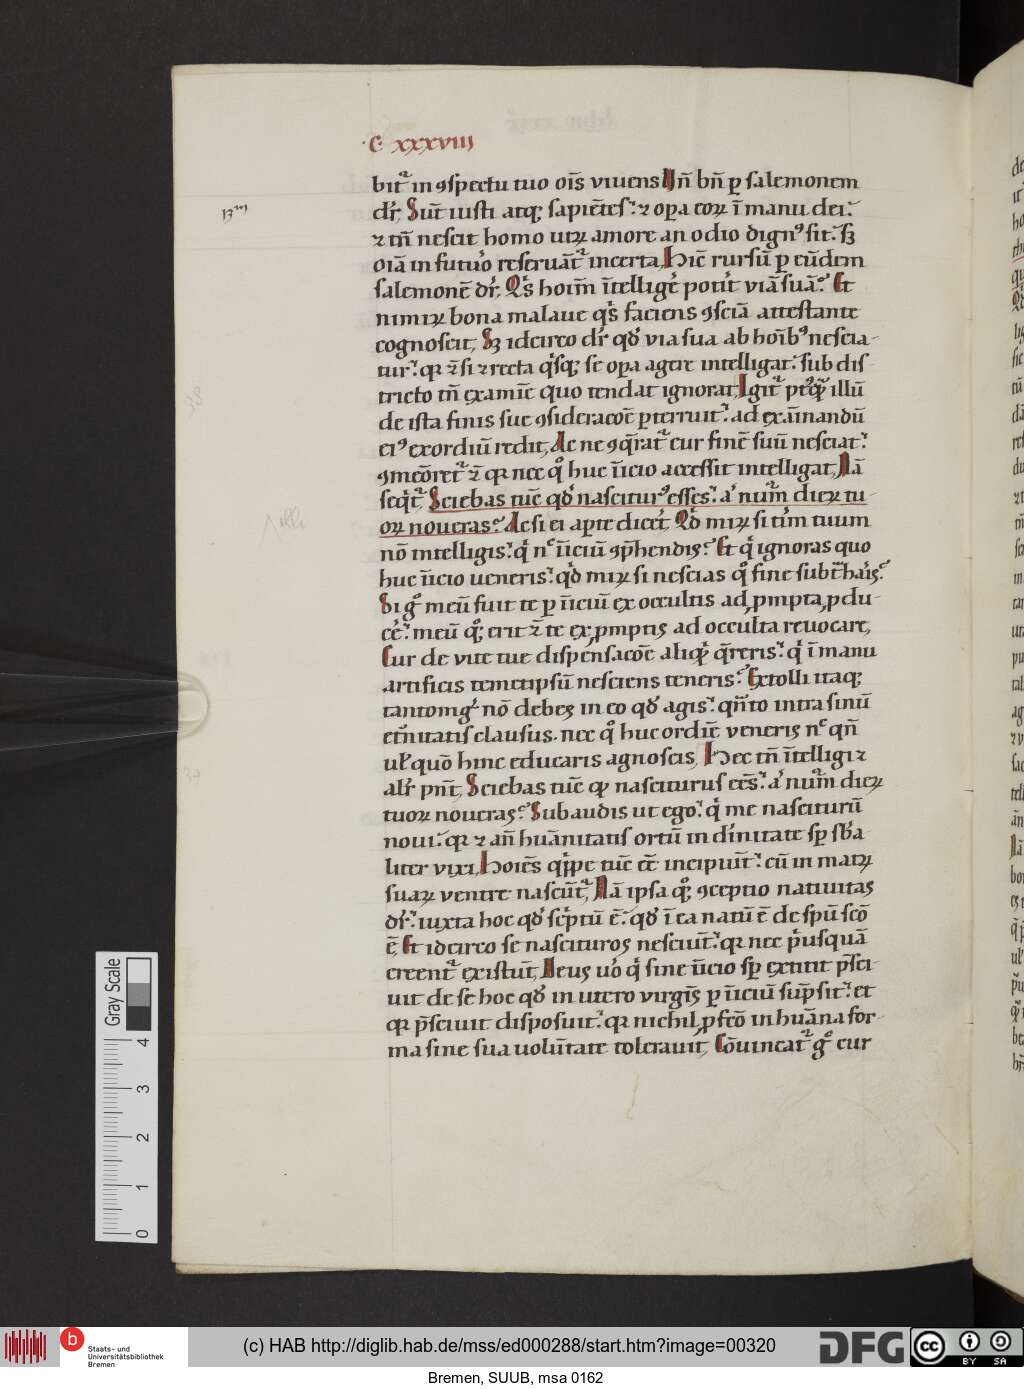 C xxxviii
bit᷑ in ꝯspectu tuo oīs viuens In̄ bn̄ ꝑ salemonem
13us
dr̄. Sūt iusti atqꝫ sapiētes. ⁊ oꝑa eoꝝ ī manu dei.
⁊ tn̄ nescit homo utꝝ amore an odio dignꝰ sit. sꝫ
oīa in futuro reseruāt᷑ incerta. Hīc rursū ꝑ eūdem
salemonē dr̄. Qis hoīm ītelligere poterit viā suā. Et
nimiꝝ bona malaue qis faciens ꝯsciā attestante
cognoscit. Sꝫ idcirco dr̄ qd via sua ab hoībꝰ nescia-
tur. qꝛ ⁊si ⁊ recta qisqꝫ se oꝑa agere intelligat. sub dis-
tricto tn̄ examīe quo tendat ignorat. Igit᷑ illū
38
de ista finis sue ꝯsideracōe ꝑterruit. ad exāinandū
eiꝰ exordiū redit. Ac ne ꝯqirat᷑ cur finē suū nesciat.
nec qͦ huc īicio accessit intelligat. Nā
seqit᷑. Sciebas tūc qd nasciturꝰ esses. ⁊ num̄ dieꝝ tu-
oꝝ noueras. Ac si ei aꝑte dicet. Qd miꝝ si tim tuum
nō intelligis. qi nc īiciū ꝯp̄hendis. Et qi ignoras quo
huc īicio ueneris. qd miꝝ si nescias qͦ fine subt̄haris.
Si gͦ meū fuit te ꝑ īiciū ex occultis ad ꝓmpta ꝓdu-
cē. meū qͦꝫ erit ⁊ te ex ꝓmptis ad occulta reuocare.
Cur de vite tue dispēsacōe q̄reris. qi ī manu
artificis temetipsū nesciens teneris. Extolli itaqꝫ
tantomgi nō debes in eo qd agis. qn̄to intra sinū
et̄nitatis clausus. nec qͦ huc ordīe veneris nc qn̄
ul quōo hinc educaris agnoscis. Hec tn̄ ītelligi ⁊
39
alr̄ pn̄t. Sciebas tūc ꝙ nasciturus eēs. ⁊ num̄ dieꝝ
tuoꝝ noueras. Subaudis ut ego. qi me nasciturū
noui. qꝛ ⁊ an̄ huānitatis ortū in diinitate sꝑ sba
liter vixi. Hoīes qippe tūc eē incipiūt. cū in matꝝ
suaꝝ ventre nascūt᷑. Nā ipsa qͦꝫ ꝯceptio natiuitas
dr̄. iuxta hoc qd scriptū ē. qd ī ea natū ē de spū scō
ē. Et idcirco se nascituros nesciūt. qꝛ nec priusquā
creent᷑ existūt. Deus uͦo qi sine īicio sꝑ extitit p̄sci-
uit de se hoc qd in utero virgīs ꝑ īiciū sūpsit. et
qꝛ p̄sciuit disposuit. qꝛ nichil ꝓfcō in huāna for-
ma sine sua volūtate tolerauit. Cōuincat᷑ gͦ cur
Gray Scale
4
3
2
1
0
b
Staats- und
Universitätsbibliothek
Bremen
(c) HAB http://diglib.hab.de/mss/ed000288/start.htm?image=00320
DFG
cc
BY SA
Bremen, SUUB, msa 0162